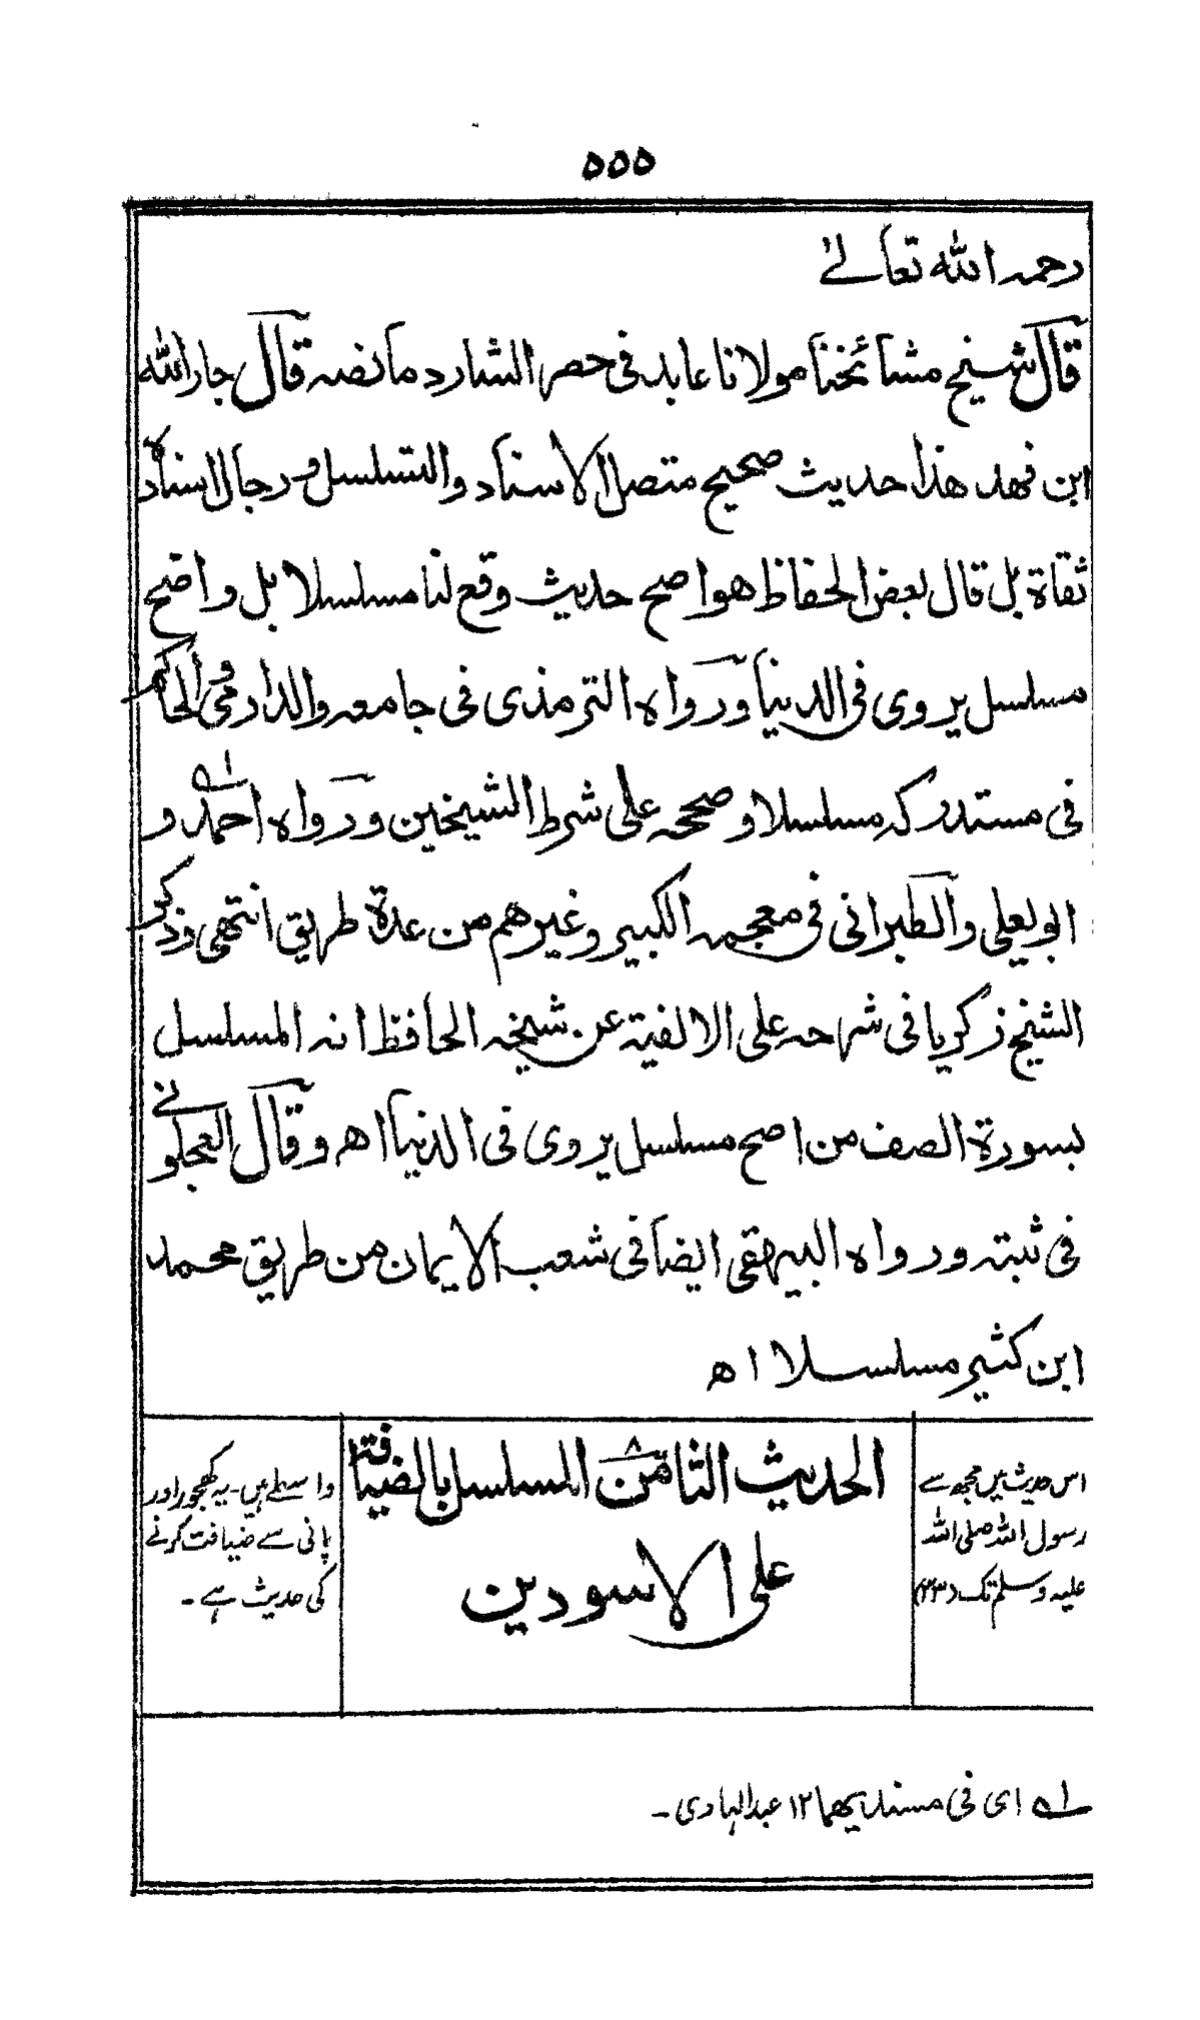 ٥٥٥
رحمہ اللہ تعالیٰ
قال شیخ مشائخنا مولانا عابد فی حصر الشارد ما نصہ قال جار اللہ
ابن فہد ھذا حدیث صحیح متصل الاسناد والتسلسل ورجال اسنادہ
ثقاۃ بل قال بعض الحفاظ ھو اصح حدیث وقع لنا مسلسلا بل واضح
مسلسل یروی فی الدنیا ورواہ الترمذی فی جامعہ والدارمی والحاکم
فی مستدرکہ مسلسلا وصححہ علی شرط الشیخین ورواہ احمد ۱؎ و
ابو یعلی والطبرانی فی معجمہ الکبیر وغیرھم من عدۃ طریق انتھی وذکر
الشیخ زکریا فی شرحہ علی الالفیۃ عن شیخہ الحافظ انہ المسلسل
بسورۃ الصف من اصح مسلسل یروی فی الدنیا اھ وقال العجلونی
فی ثبتہ ورواہ البیہقی ایضا فی شعب الایمان من طریق محمد
ابن کثیر مسلسلا اھ
اس حدیث میں مجھ سے
رسول اللہ صلی اللہ
علیہ وسلم تک (۲۳)
الحدیث الثامن ۸ المسلسل بالضیافۃ
علی الاسودین
واسطے ہیں۔ یہ کھجور اور
پانی سے ضیافت کرنے
کی حدیث ہے۔
۱؎ ای فی مسندیھما ۱۲ عبدالہادی۔